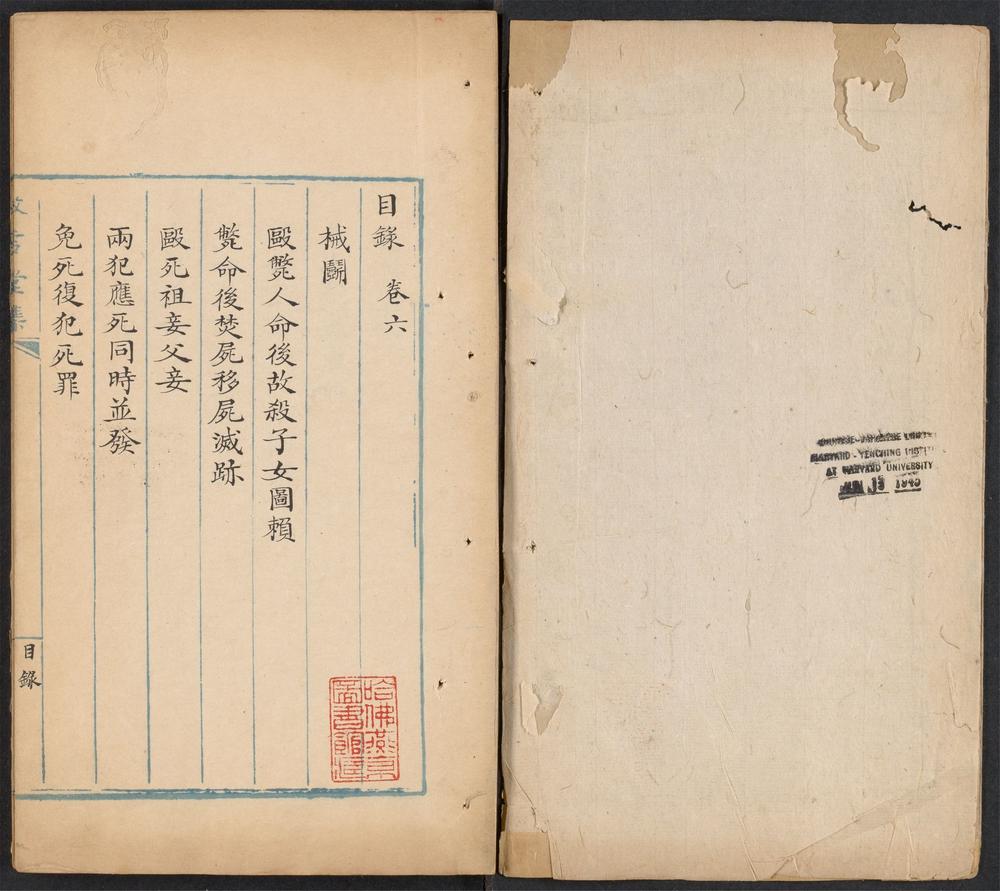 目錄 卷六
械鬬
毆斃人命後故殺子女圖賴
斃命後焚屍移屍滅跡
毆死祖妾父妾
兩犯應死同時並發
免死復犯死罪
目錄
哈佛燕京
圖書館
CHINESE-JAPANESE
HARVARD-YENCHING
AT HARVARD UNIVERSITY